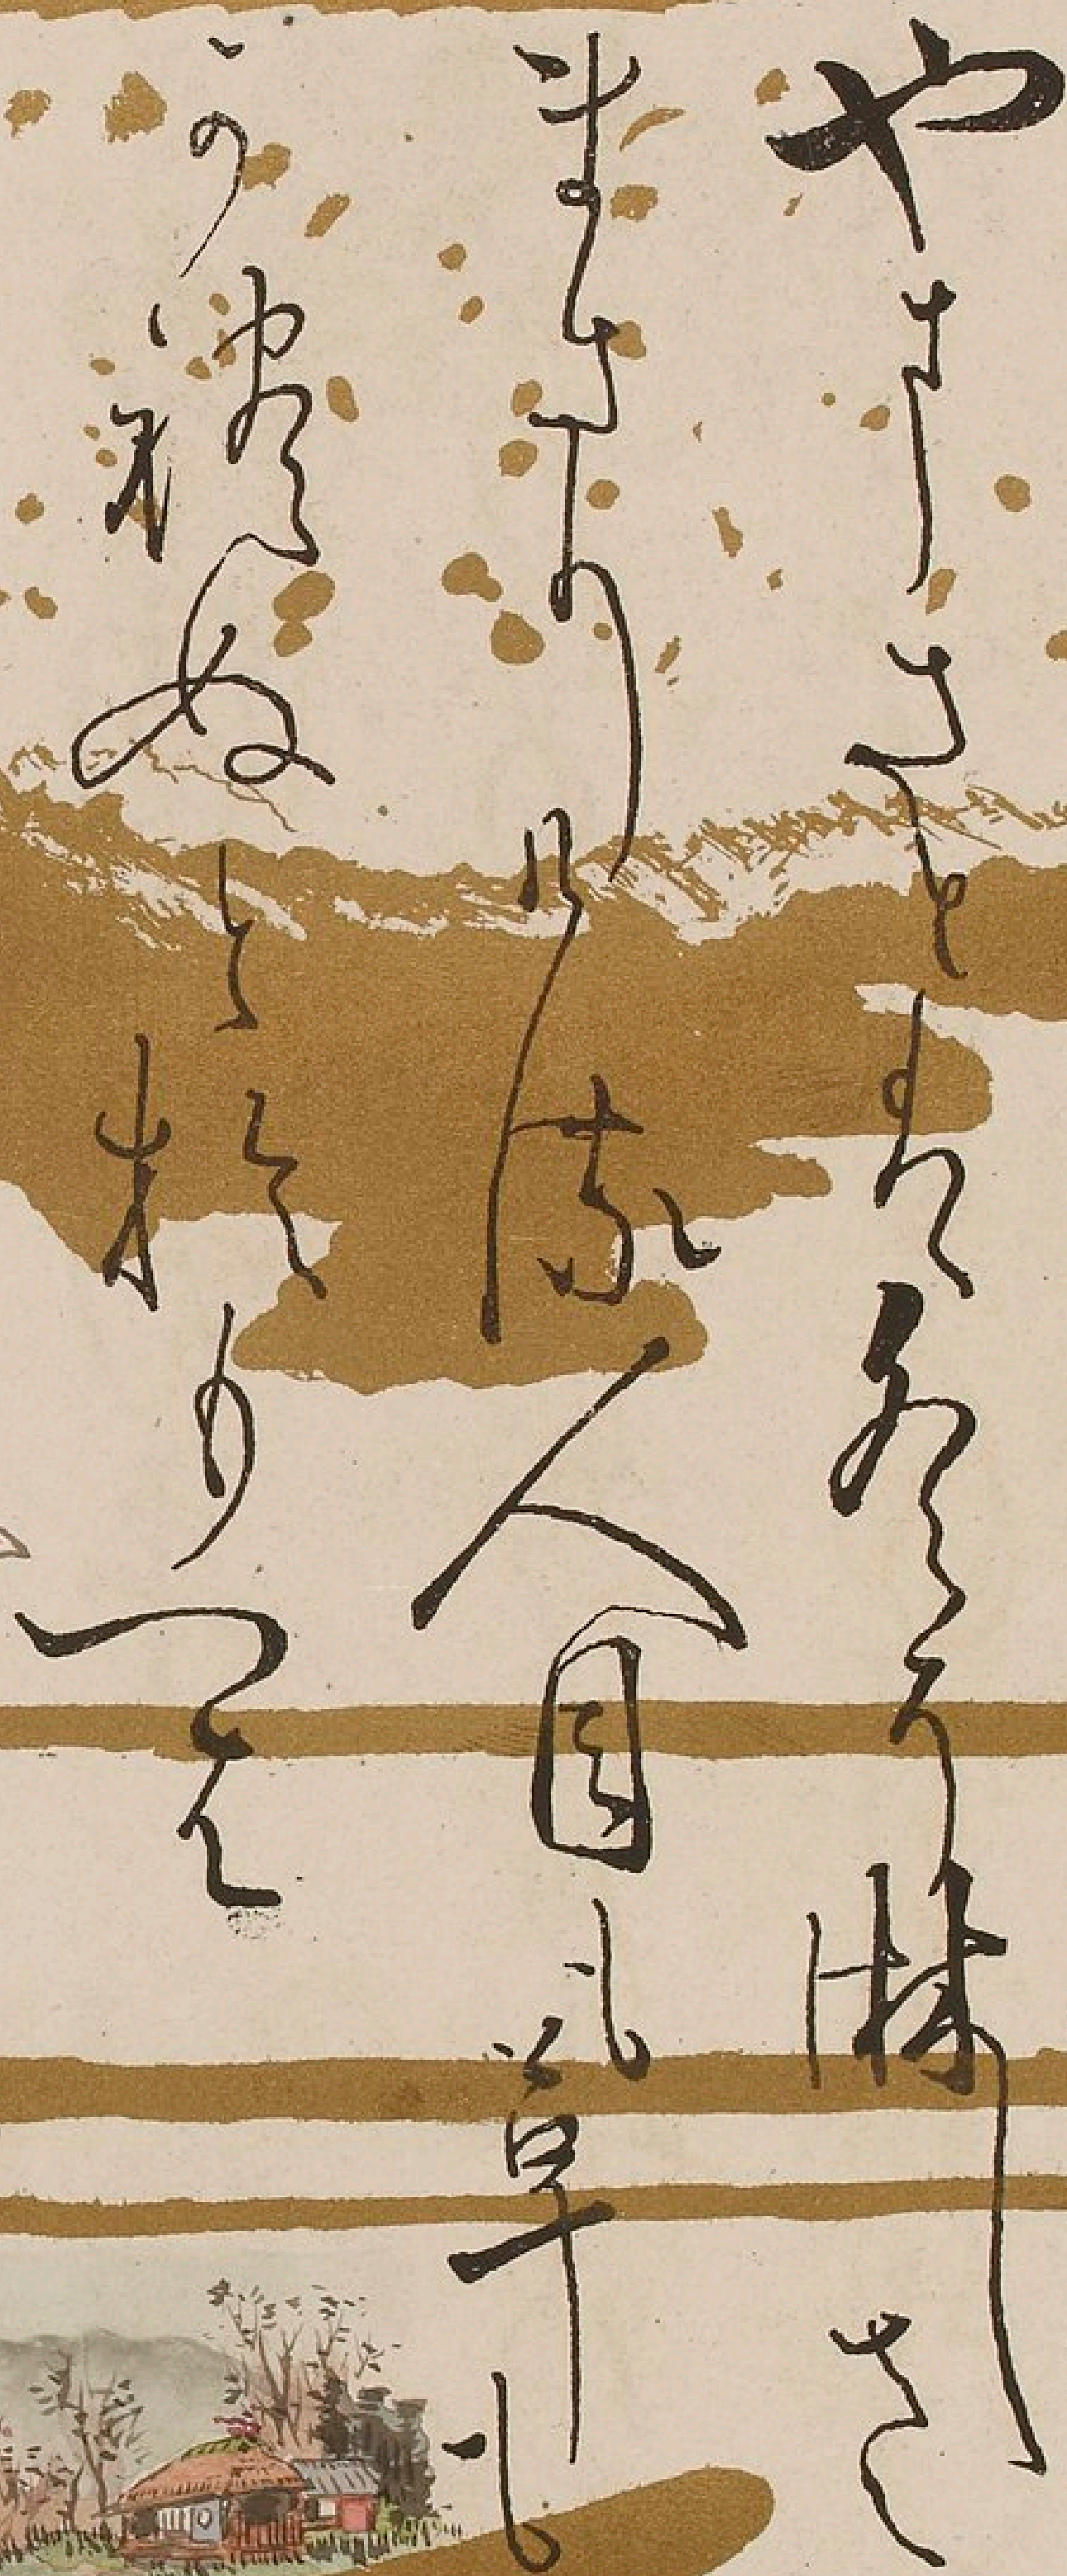 やまさとは冬そ淋しさ
まさりける人目も草も
かれぬとおもへは